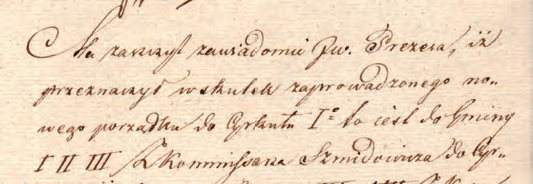 Ma zaszczyt zawiadomić Jw. Prezesa, iż
przeznaczył wskutek zaprowadzonego no-
wego porządku do Cyrkułu I° to iest do Gminy
I II III Kommissarza Szmidowicza do Cyr-